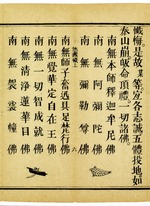 懺悔是故某等宜各志誠五體投地如
泰山崩皈命頂禮一切諸佛
南無本師釋迦牟尼佛
南無阿彌陀佛
南無彌勒尊佛
南無師子奮迅具足萬行佛
南無覺華定自在王佛
南無一切智成就佛
南無清淨蓮華目佛
南無製雲幢佛